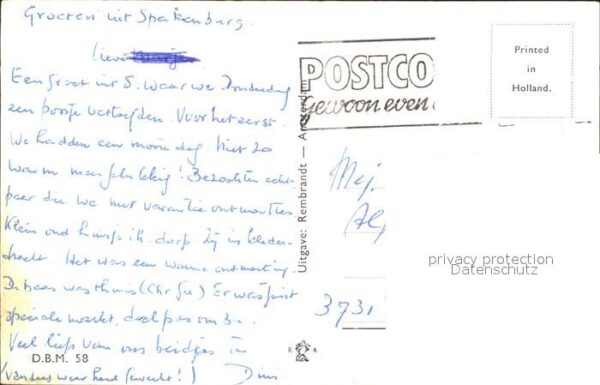 Groeten uit Spakenburg.
Lieve
Een groet uit S. waar we Donderdag
een poosje vertoefden. Voor het eerst.
We hadden een mooie dag. Niet zo
warm maar
Bezochten echt-
paar die we met vacantie ontmoetten
Klein oud huisje i.h. dorp. Zij in kleder-
dracht. Het was een warme ontmoeting.
De baas was thuis
Er was juist
speciale markt, doch pas om 3 u.
Veel liefs van ons beidjes
(vandaag weer hard gewerkt!) Dini
D.B.M. 58
Uitgave: Rembrandt — Amsterdam
R A
POSTCO
gewoon even
Printed
in
Holland.
Mej.
3731
privacy protection
Datenschutz